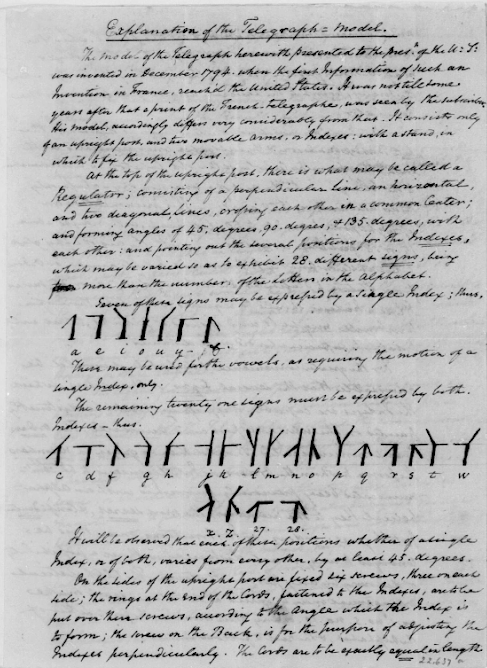 Explanation of the Telegraph = Model.
The Model of the Telegraph herewith presented to the pres.t of the U: S:
was invented in December 1794. when the first Information of such an
Invention in France, reach'd the United States. It was not till some
years after that a print of the French Telegraphe, was seen by the subscriber
His model, accordingly differs very considerably from that. It consists only
of an upright post, and two movable arms. or Indexes; with a stand, in
which to fix the upright post.
At the top of the upright post, there is what may be called a
Regulator; consisting of a perpendicular line, an horizontal,
and two diagonal lines, crossing each other in a common Center;
and forming angles of 45, degrees, 90. degrees, & 135. degrees, with
each other: and pointing out the several positions for the Indexes,
which may be varied so as to exhibit 28. different signs, being
more than the number of the Letters in the Alphabet.
Seven of these signs may be expressed by a single Index; thus,
a e i o u y - &.
These may be used for the vowels, as requiring the motion of a
single Index, only.
The remaining twenty one signs must be expressed by both
Indexes - thus.
c d f g h j k l m n o p q r s t w
x. z. 27. 28.
It will be observed that each of these positions whether of a single
Index, or of both, varies from every other, by at least 45. degrees.
On the sides of the upright post are fixed six screws, three on each
side; the rings at the end of the Cords, fastened to the Indexes, are to be
put over these screws, according to the angle which the Index is
to form; the screw on the Back, is for the purpose of adjusting the
Indexes perpendicularly. The Cords are to be exactly equal in length
22437